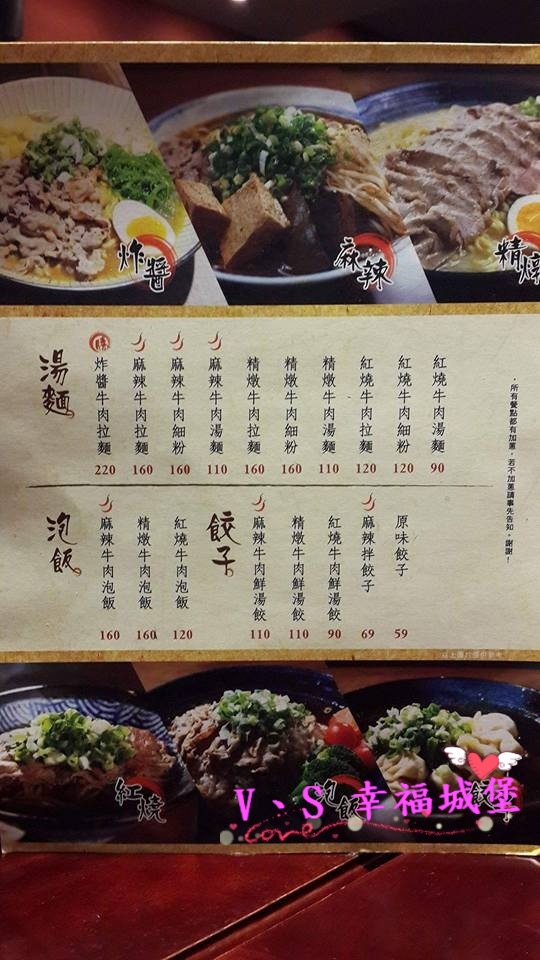 炸醬
麻辣
精燉
湯麵
炸醬牛肉拉麵 220
麻辣牛肉拉麵 160
麻辣牛肉細粉 160
麻辣牛肉湯麵 110
精燉牛肉拉麵 160
精燉牛肉細粉 160
精燉牛肉湯麵 110
紅燒牛肉拉麵 120
紅燒牛肉細粉 120
紅燒牛肉湯麵 90
．所有餐點都有加蔥，若不加蔥請事先告知，謝謝！
泡飯
麻辣牛肉泡飯 160
精燉牛肉泡飯 160
紅燒牛肉泡飯 120
餃子
麻辣牛肉鮮湯餃 110
精燉牛肉鮮湯餃 110
紅燒牛肉鮮湯餃 90
麻辣拌餃子 69
原味餃子 59
以上圖片僅供參考
紅燒
泡飯
V、S 幸福城堡
Love